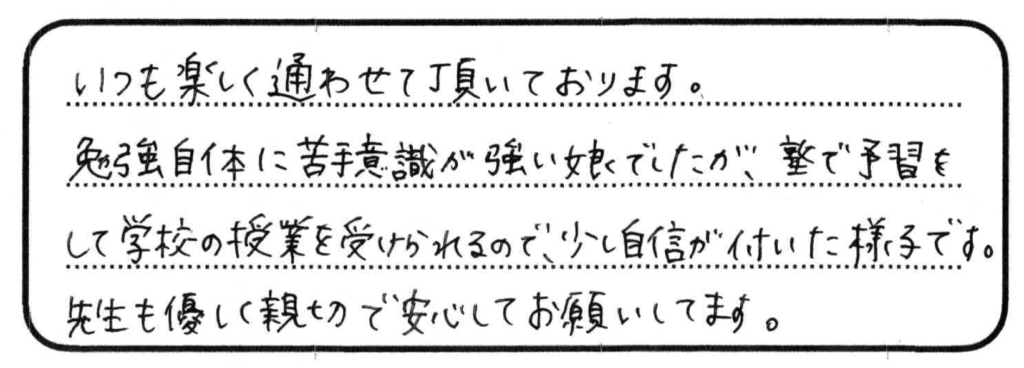 いつも楽しく通わせて頂いております。
勉強自体に苦手意識が強い娘でしたが、塾で予習を
して学校の授業を受けられるので、少し自信が付いた様子です。
先生も優しく親切で安心してお願いしてます。